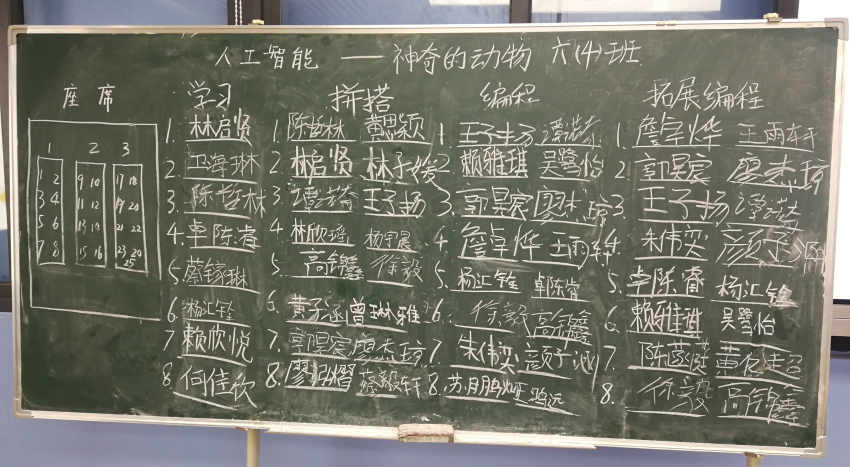 人工智能 — 神奇的动物 六(4)班
座席
1 2 3
1 2 9 10 17 18
3 4 11 12 19 20
5 6 13 14 21 22
7 8 15 16 23 24
25
学习
1. 林启贤
2. 卫海琳
3. 陈哲林
4. 卓陈睿
5. 蔡镓琳
6. 杨汇铨
7 赖欣悦
8. 何佳钦
拼搭
1. 陈哲林 黄思颖
2. 林启贤 林子媛
3. 王子扬
4. 林欣瑶 杨宇晨
5. 高锦鑫 徐毅
6. 黄子涵 曾琳雅
7. 郭昊宸 廖杰琼
8. 廖
编程
1 王子扬
2 赖雅琪 吴鹭怡
3. 郭昊宸 廖杰琼
4. 詹卓烨 王雨轩
5. 杨汇铨 卓陈睿
6. 徐毅 高锦鑫
7 朱伟奕 颜子涵
8.
拓展编程
1. 詹卓烨 王雨轩
2. 郭昊宸 廖杰琼
3. 王子扬
4. 朱伟奕 颜子涵
5. 卓陈睿 杨汇铨
6. 赖雅琪 吴鹭怡
7.
8. 徐毅 高锦鑫